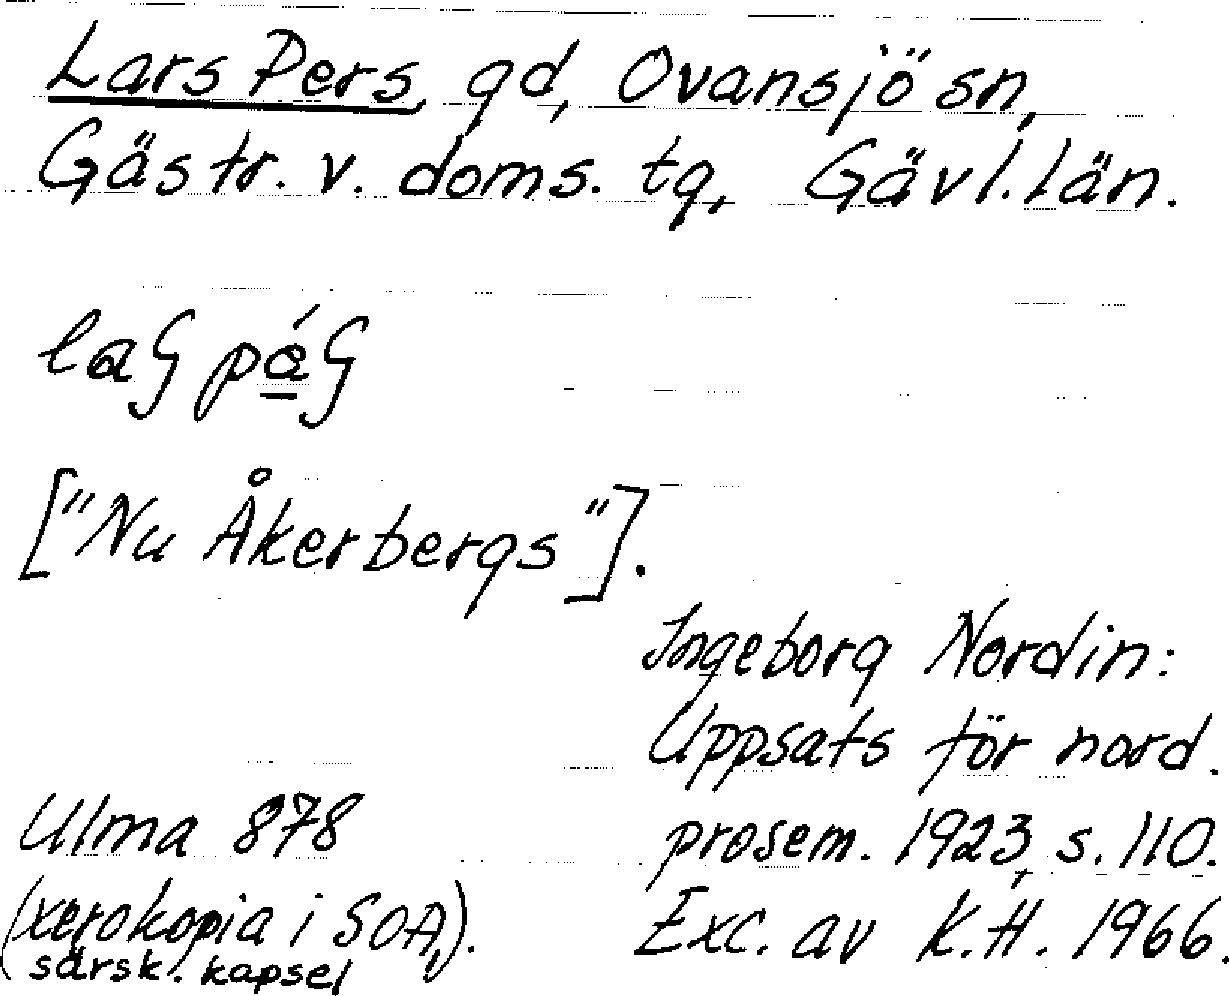 Lars Pers, gd, Ovansjö sn,
Gästr. v. doms. tg, Gävl. län.
["Nu Åkerbergs"].
Ingeborg Nordin:
Uppsats för nord.
prosem. 1923, s. 110.
Exc. av K.H. 1966.
Ulma 878
(xerokopia i SOA,
särsk. kapsel).